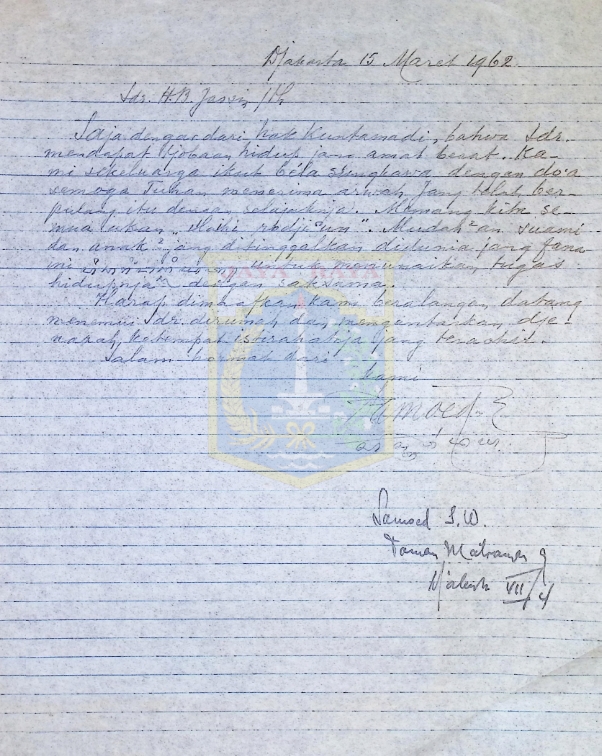 Djakarta 15 Maret 1962.
Sdr. H.B. Jassin
Saja dengar dari bahwa Sdr.
mendapat tjobaan hidup jang amat berat. Ka-
mi sekeluarga ikut béla sungkawa dengan do'a
semoga Tuhan menerima arwah jang telah ber-
pulang itu dengan selajaknja. Memang kita se-
mua akan „ Ilaihi rodji'un ". Mudah²an suami
dan anak² jang ditinggalkan didunia jang fana
ini menunaikan tugas
hidupnja dengan saksama.
Harap dimaafkan kami beralangan datang
menemui Sdr. dirumah dan mengantarkan dje-
nazah ketempat istirahatnja jang terachir.
Salam hormat dari
kami
Samoed S.W.
Taman Matraman 9
Djakarta VII/4
JAYA RAYA